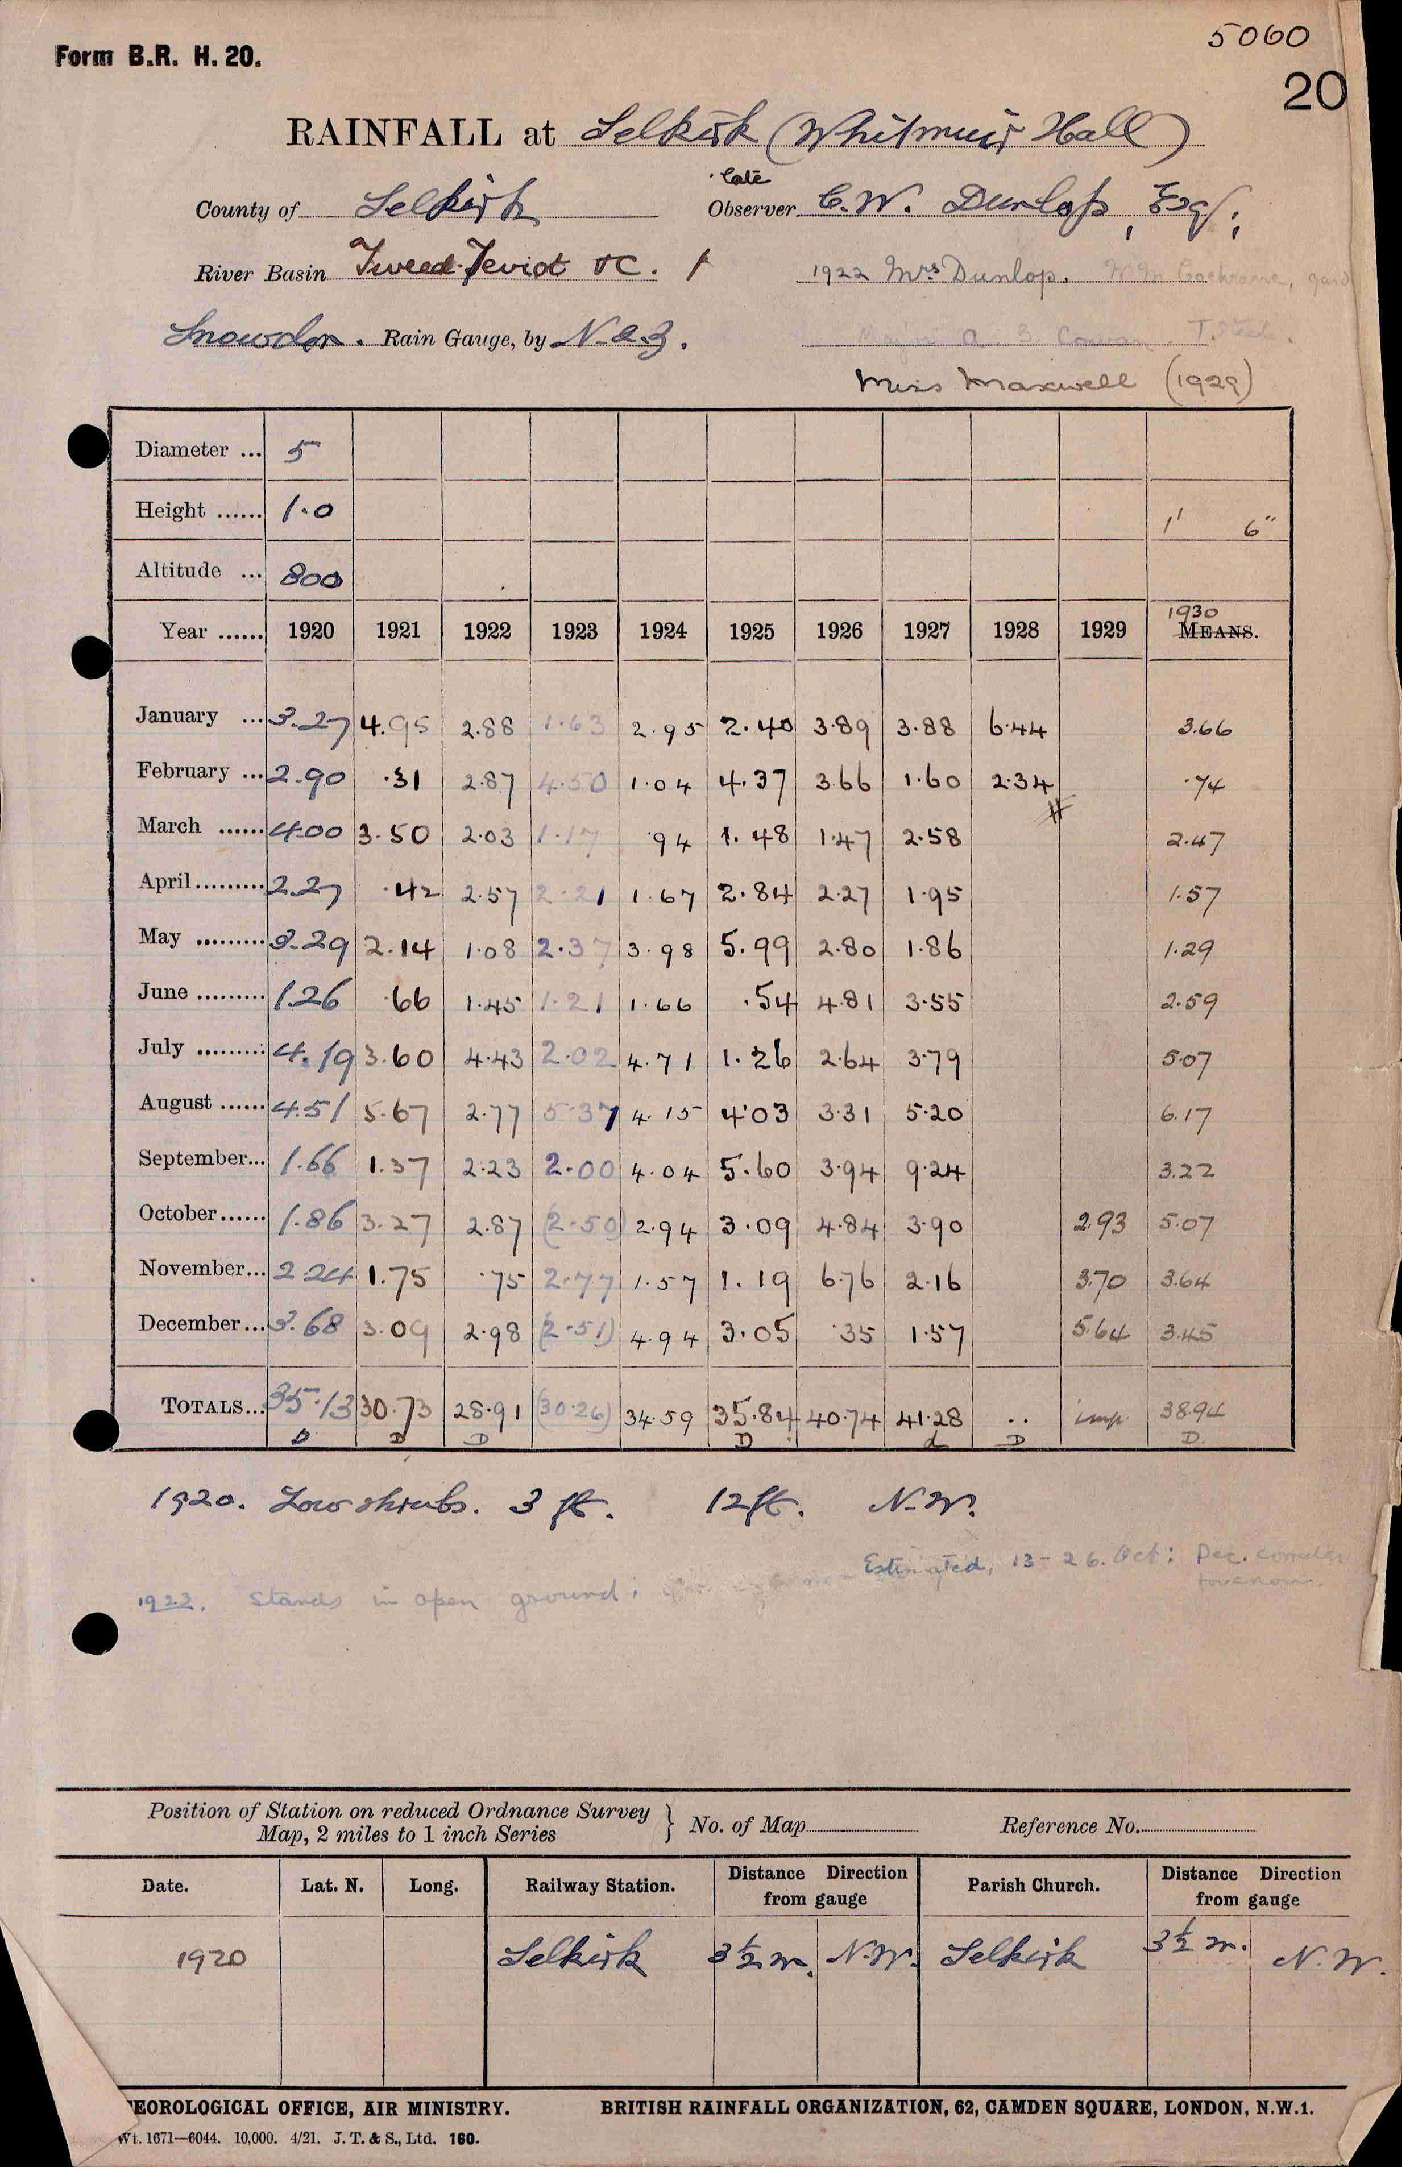 Form B.R. H. 20.
5060
20
RAINFALL at Selkirk (Whitmuir Hall)
County of Selkirk
late
Observer C.W. Dunlop, Esq.;
River Basin Tweed. Teviot &c. 1
1922 Mrs Dunlop. Cochrane,
Snowdon. Rain Gauge, by N. & Z.
Major A. B. Cowan.
Miss Maxwell (1929)
Diameter ... 5
Height ...... 1.0 1' 6"
Altitude ... 800
1930
Year ...... 1920 1921 1922 1923 1924 1925 1926 1927 1928 1929 MEANS.
January ... 3.27 4.95 2.88 1.63 2.95 2.40 3.89 3.88 6.44 3.66
February ... 2.90 .31 2.87 4.50 1.04 4.37 3.66 1.60 2.34 .74
March ...... 4.00 3.50 2.03 1.17 .94 1.48 1.47 2.58 # 2.47
April......... 2.27 .42 2.57 2.21 1.67 2.84 2.27 1.95 1.57
May ......... 3.29 2.14 1.08 2.37 3.98 5.99 2.80 1.86 1.29
June ......... 1.26 .66 1.45 1.21 1.66 .54 4.81 3.55 2.59
July ......... 4.19 3.60 4.43 2.02 4.71 1.26 2.64 3.79 5.07
August ...... 4.51 5.67 2.77 5.37 4.15 4.03 3.31 5.20 6.17
September... 1.66 1.37 2.23 2.00 4.04 5.60 3.94 9.24 3.22
October...... 1.86 3.27 2.87 (2.50) 2.94 3.09 4.84 3.90 2.93 5.07
November... 2.24 1.75 .75 2.77 1.57 1.19 6.76 2.16 3.70 3.64
December... 3.68 3.09 2.98 (2.51) 4.94 3.05 .35 1.57 5.64 3.45
TOTALS... 35.13 30.73 28.91 (30.26) 34.59 35.84 40.74 41.28 .. imp. 38.94
D D D D d D D.
1920. Low shrubs. 3 ft. 12ft. N.W.
Estimated, 13-26. Oct: Dec.
1922. Stands in open ground;
Position of Station on reduced Ordnance Survey
Map, 2 miles to 1 inch Series } No. of Map............ Reference No.............
Date. Lat. N. Long. Railway Station. Distance Direction from gauge Parish Church. Distance Direction from gauge
1920 Selkirk 3½ m. N.W. Selkirk 3½ m. N.W.
EOROLOGICAL OFFICE, AIR MINISTRY. BRITISH RAINFALL ORGANIZATION, 62, CAMDEN SQUARE, LONDON, N.W.1.
Wt. 1671—6044. 10,000. 4/21. J. T. & S., Ltd. 160.